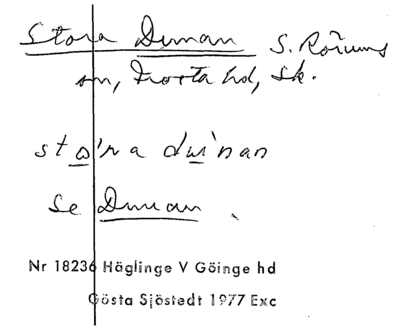 Stora Dunan S. Rörums
sn, Frosta hd, Sk.
stɷ'ra dɯ'nan
Se Dunan.
Nr 18236 Häglinge V Göinge hd
Gösta Sjöstedt 1977 Exc